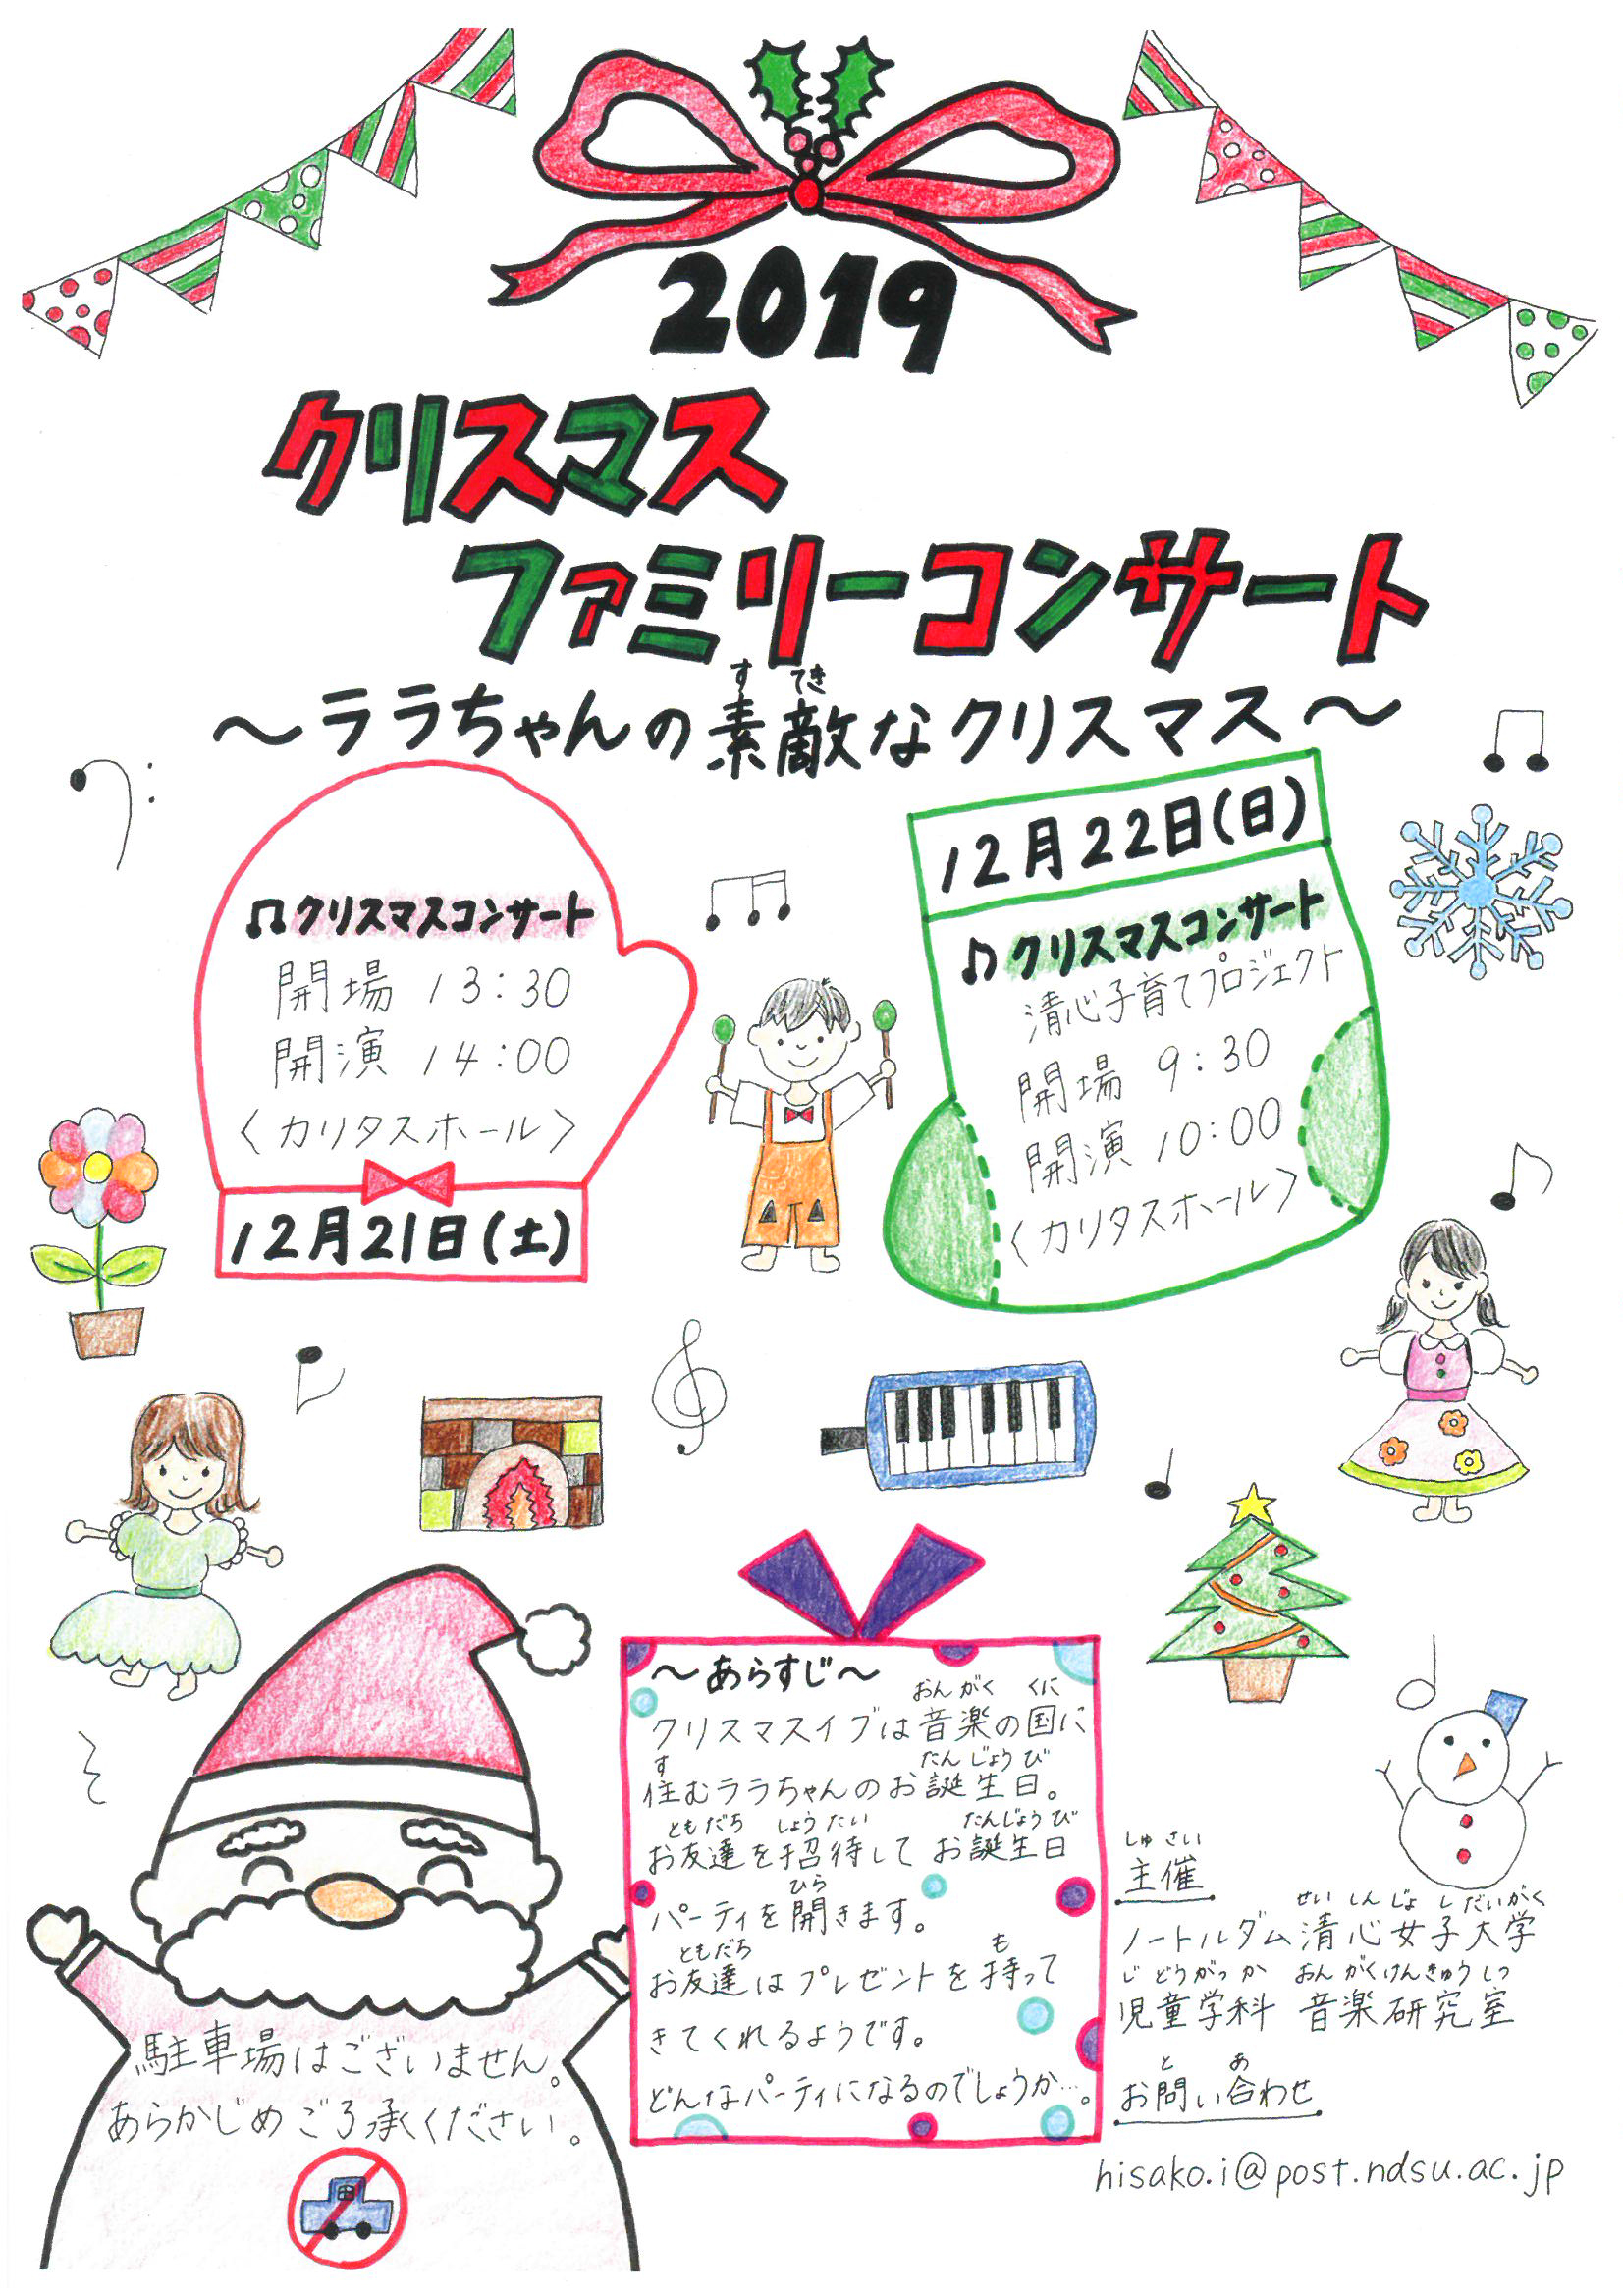 2019
クリスマス
ファミリーコンサート
すてき
～ララちゃんの素敵なクリスマス～
クリスマスコンサート
開場 13:30
開演 14:00
〈カリタスホール〉
12月21日(土)
12月22日(日)
クリスマスコンサート
清心子育てプロジェクト
開場 9:30
開演 10:00
〈カリタスホール〉
～あらすじ～
おんがく くに
クリスマスイブは音楽の国に
す たんじょうび
住むララちゃんのお誕生日。
ともだち しょうたい たんじょうび
お友達を招待してお誕生日
ひら
パーティを開きます。
ともだち も
お友達はプレゼントを持って
きてくれるようです。
どんなパーティになるのでしょうか…。
駐車場はございません。
あらかじめご了承ください。
しゅさい
主催
せいしんじょしだいがく
ノートルダム清心女子大学
じどうがっか おんがくけんきゅうしつ
児童学科 音楽研究室
と あ
お問い合わせ
hisako.i@post.ndsu.ac.jp